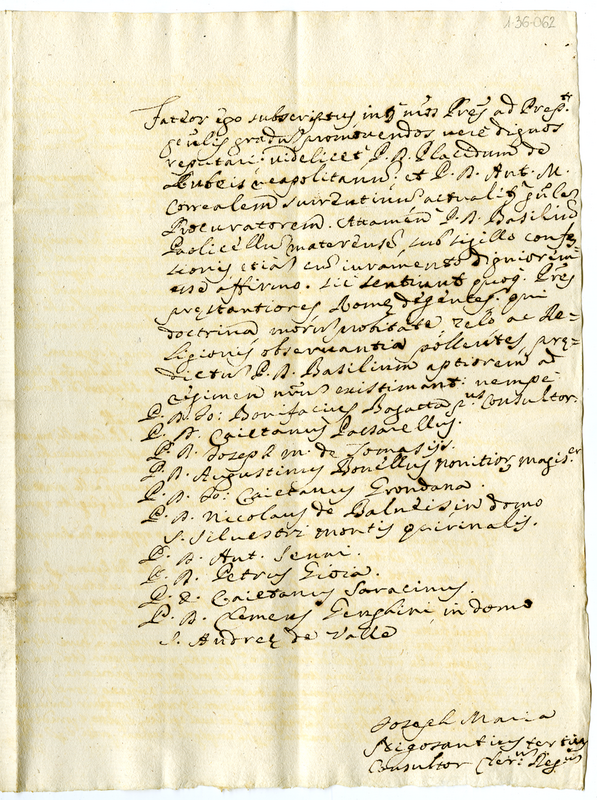 1.36-062
Fateor ego subscriptus inter nros Pres ad Prep.ti
gnlis gradum promovendos vere dignos
reputari: videlicet P. D. Placidum de
Rubeis neapolitanum, et P. D. Ant. M.
Correalem surrentinum actualiter gnlem
Procuratorem. Attamen P. D. Basilium
Paolicellum materensem, sub sigillo confes=
sionis etiam cum iuramento digniorem
esse affirmo. sic sentiunt quoq. Pres
prestantiores Rome degentes, qui
doctrina morum probitate zelo ac Re=
ligionis observantia pollentes, pre=
dictum P. D. Basilium aptiorem ad
regimen nrum existimant: nempe
P. D. Jo: Bonifacius Bagatta 2.us Consultor.
P. D. Caietanus Passarellus.
P. D. Joseph M. de Tomasijs.
P. D. Augustinus Bonellus novitior. magis.er
P. D. Jo: Caietanus Grondana.
P. D. Nicolaus de Balneis in domo
S. Silvestri montis quirinalis.
P. D. Ant. Senni.
P. D. Petrus Gioia
P. D. Caietanus Saracinus.
P. D. Clemens Genghini in domo
S. Andree de Valle
Joseph Maria
tertius
Consultor Cler. Regus